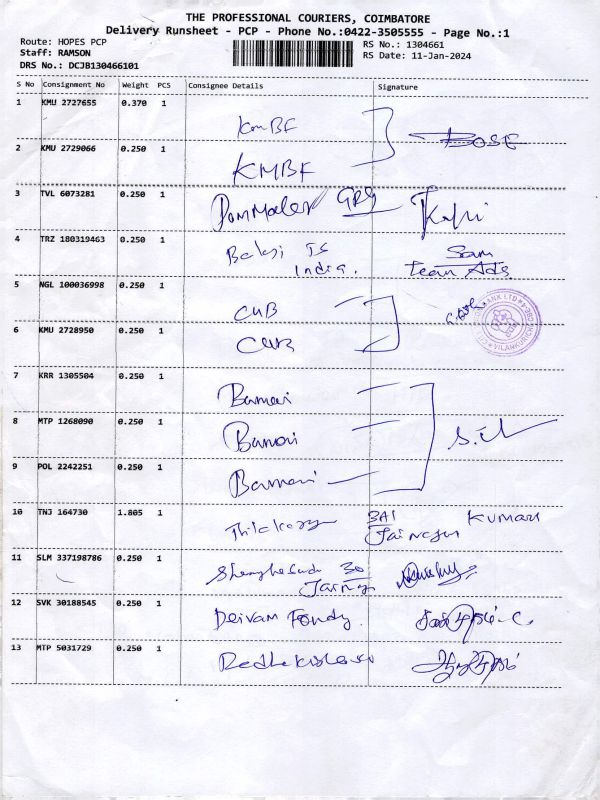 THE PROFESSIONAL COURIERS, COIMBATORE
Delivery Runsheet - PCP - Phone No.:0422-3505555 - Page No.:1
Route: HOPES PCP
RS No.: 1304661
Staff: RAMSON
RS Date: 11-Jan-2024
DRS No.: DCJB130466101
S No Consignment No Weight PCS Consignee Details Signature
1 KMU 2727655 0.370 1
KMBF
BOSE
2 KMU 2729066 0.250 1
KMBF
3 TVL 6073281 0.250 1
4 TRZ 180319463 0.250 1
Balaji TS
India.
Sam
Team Ads
5 NGL 100036998 0.250 1
CUB
6 KMU 2728950 0.250 1
CUB
7 KRR 1305504 0.250 1
Bannari
8 MTP 1268090 0.250 1
Bannari
9 POL 2242251 0.250 1
Bannari
10 TNJ 164730 1.805 1
Kumar
11 SLM 337198786 0.250 1
30
12 SVK 30188545 0.250 1
Deivam
13 MTP 5031729 0.250 1